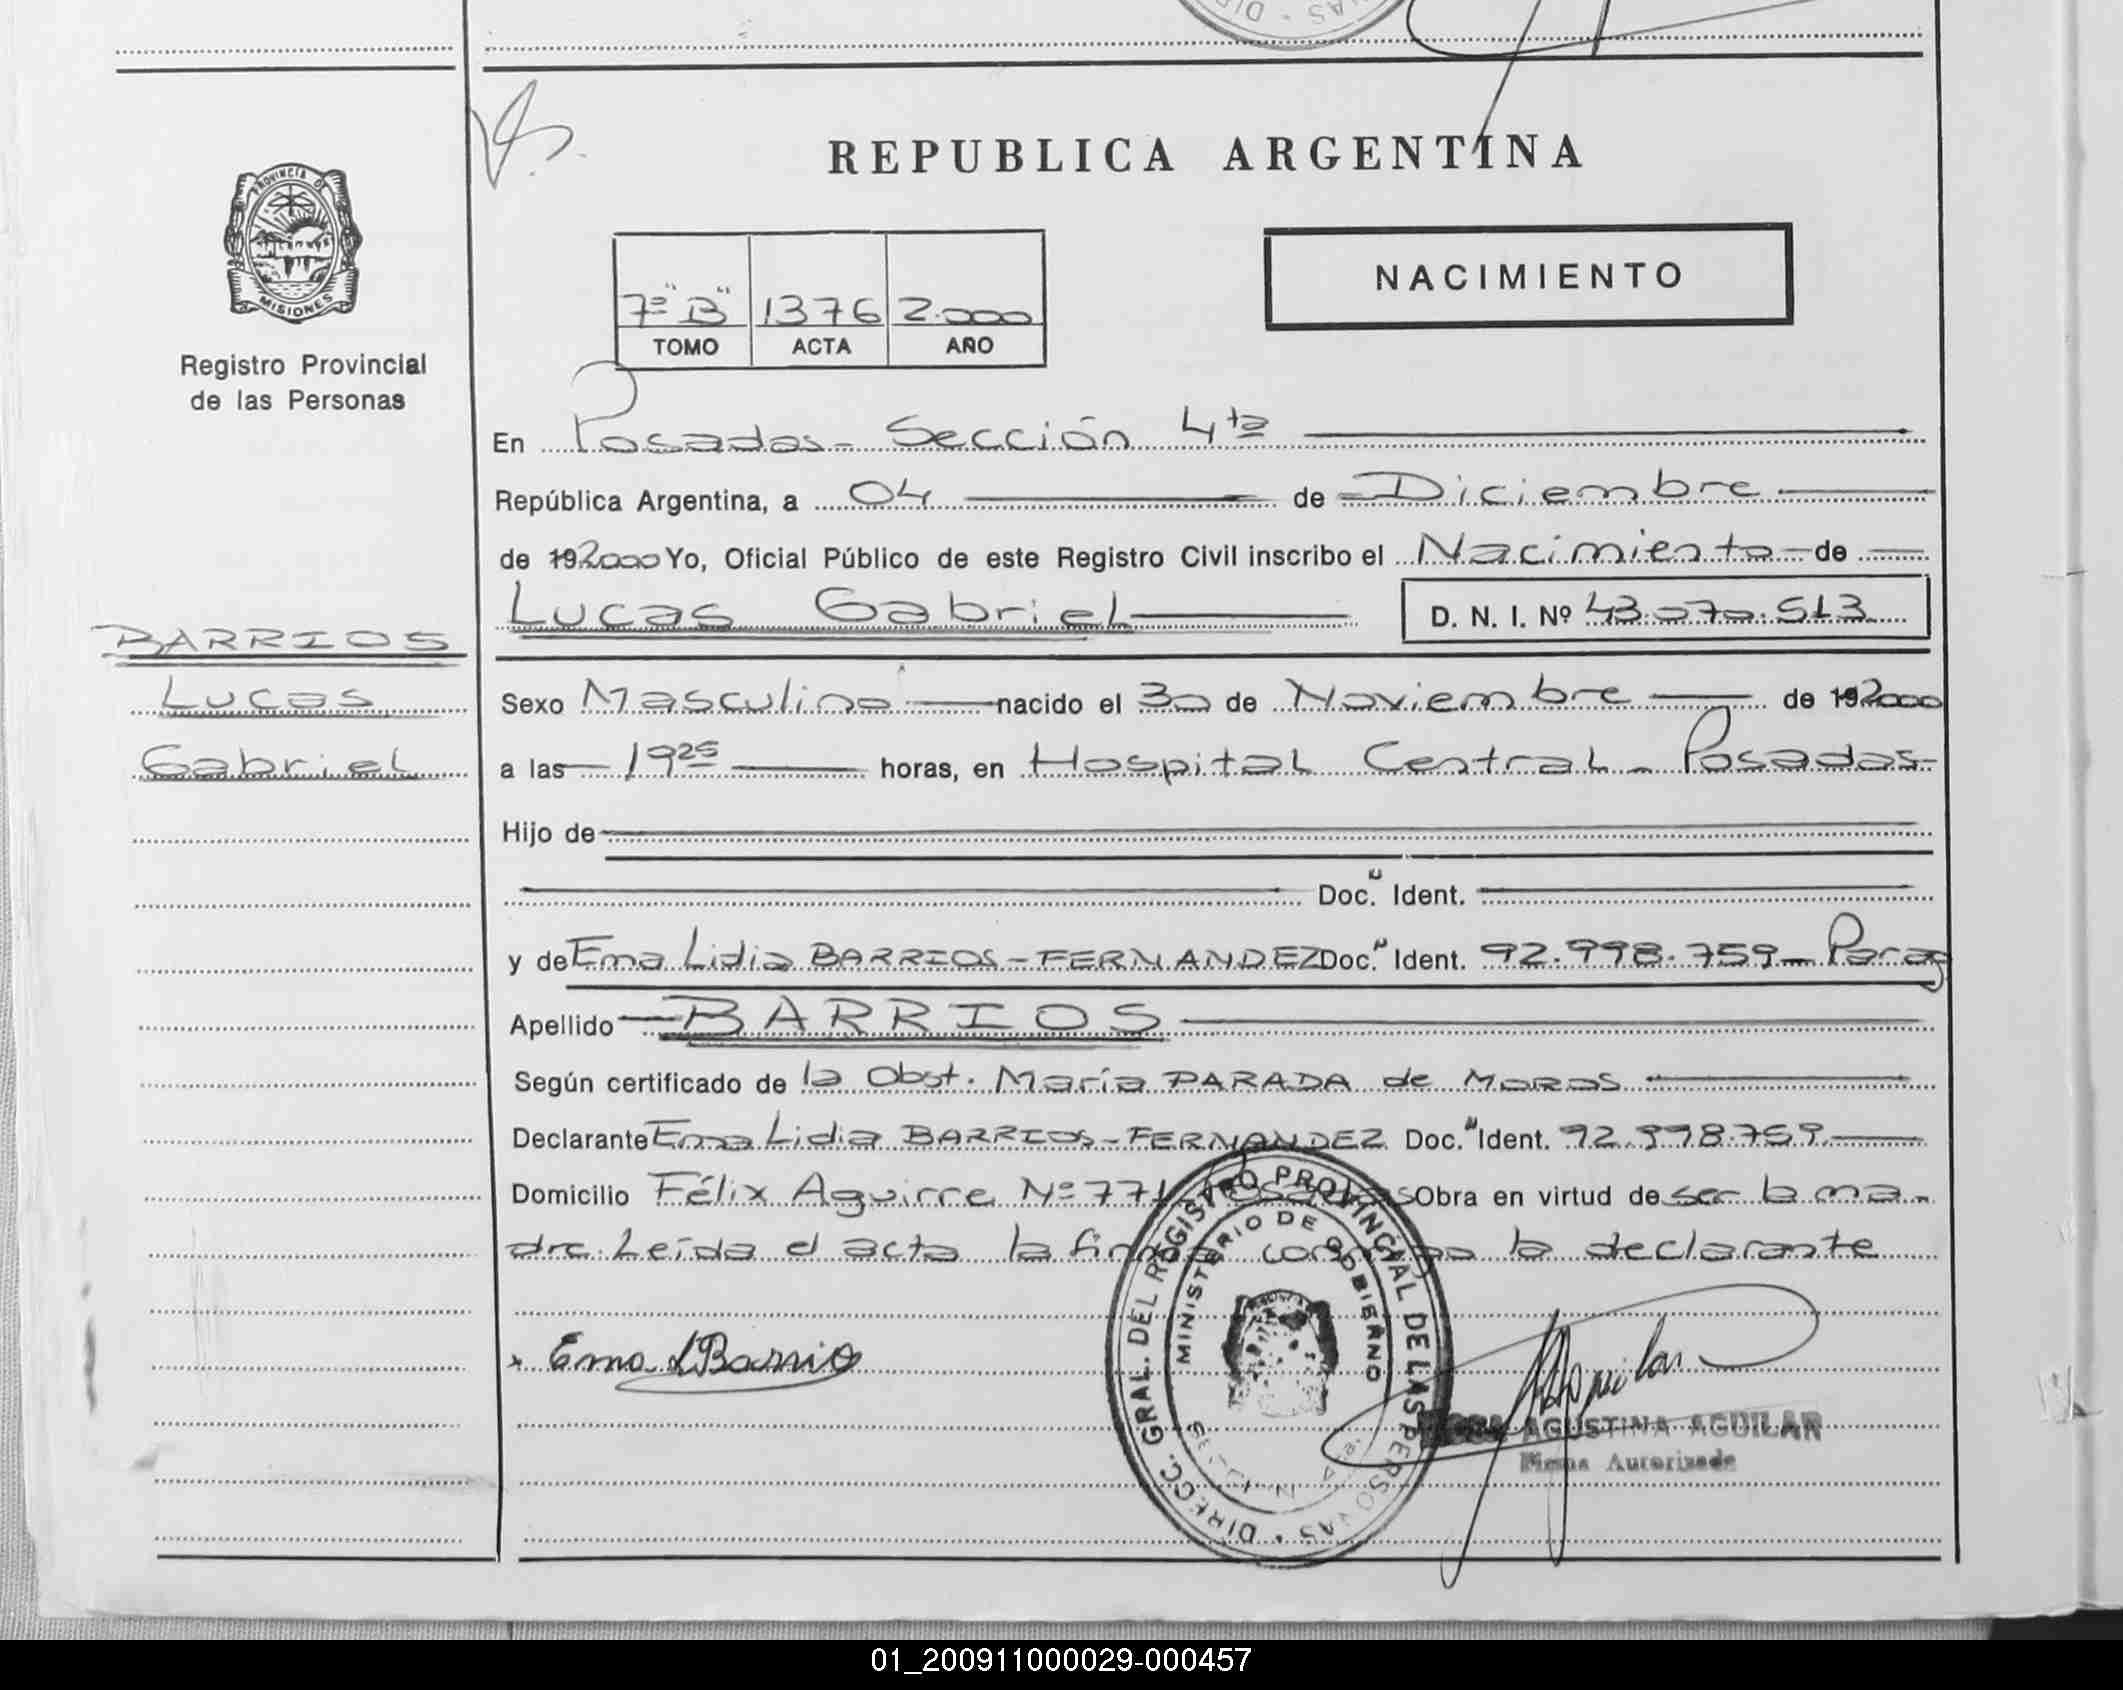 REPUBLICA ARGENTINA
PROVINCIA DE
MISIONES
Registro Provincial
de las Personas
NACIMIENTO
7º "B" 1376 2.000
TOMO ACTA AÑO
En Posadas - Sección 4ta
República Argentina, a 04 de Diciembre
de 192000 Yo, Oficial Público de este Registro Civil inscribo el Nacimiento de
Lucas Gabriel D. N. I. Nº 43.070.513
BARRIOS
Lucas
Gabriel
Sexo Masculino nacido el 30 de Noviembre de 192000
a las 19 25 horas, en Hospital Central - Posadas-
Hijo de
Doc. Ident.
y de Ema Lidia BARRIOS - FERNANDEZ Doc. Ident. 92.998.759 - Parag
Apellido BARRIOS
Según certificado de la Obst. María PARADA de MORAS
Declarante Ema Lidia BARRIOS - FERNANDEZ Doc. Ident. 92.998.759
Domicilio Félix Aguirre Nº 771 Posadas Obra en virtud de ser la ma-
dre. Leída el acta la firma conmigo la declarante
Ema L Barrio
DIRECC. GRAL. DEL REGISTRO PROVINCIAL DE LAS PERSONAS
MINISTERIO DE GOBIERNO
MISIONES
AGUSTINA AGUILAR
Firma Autorizada
01_200911000029-000457